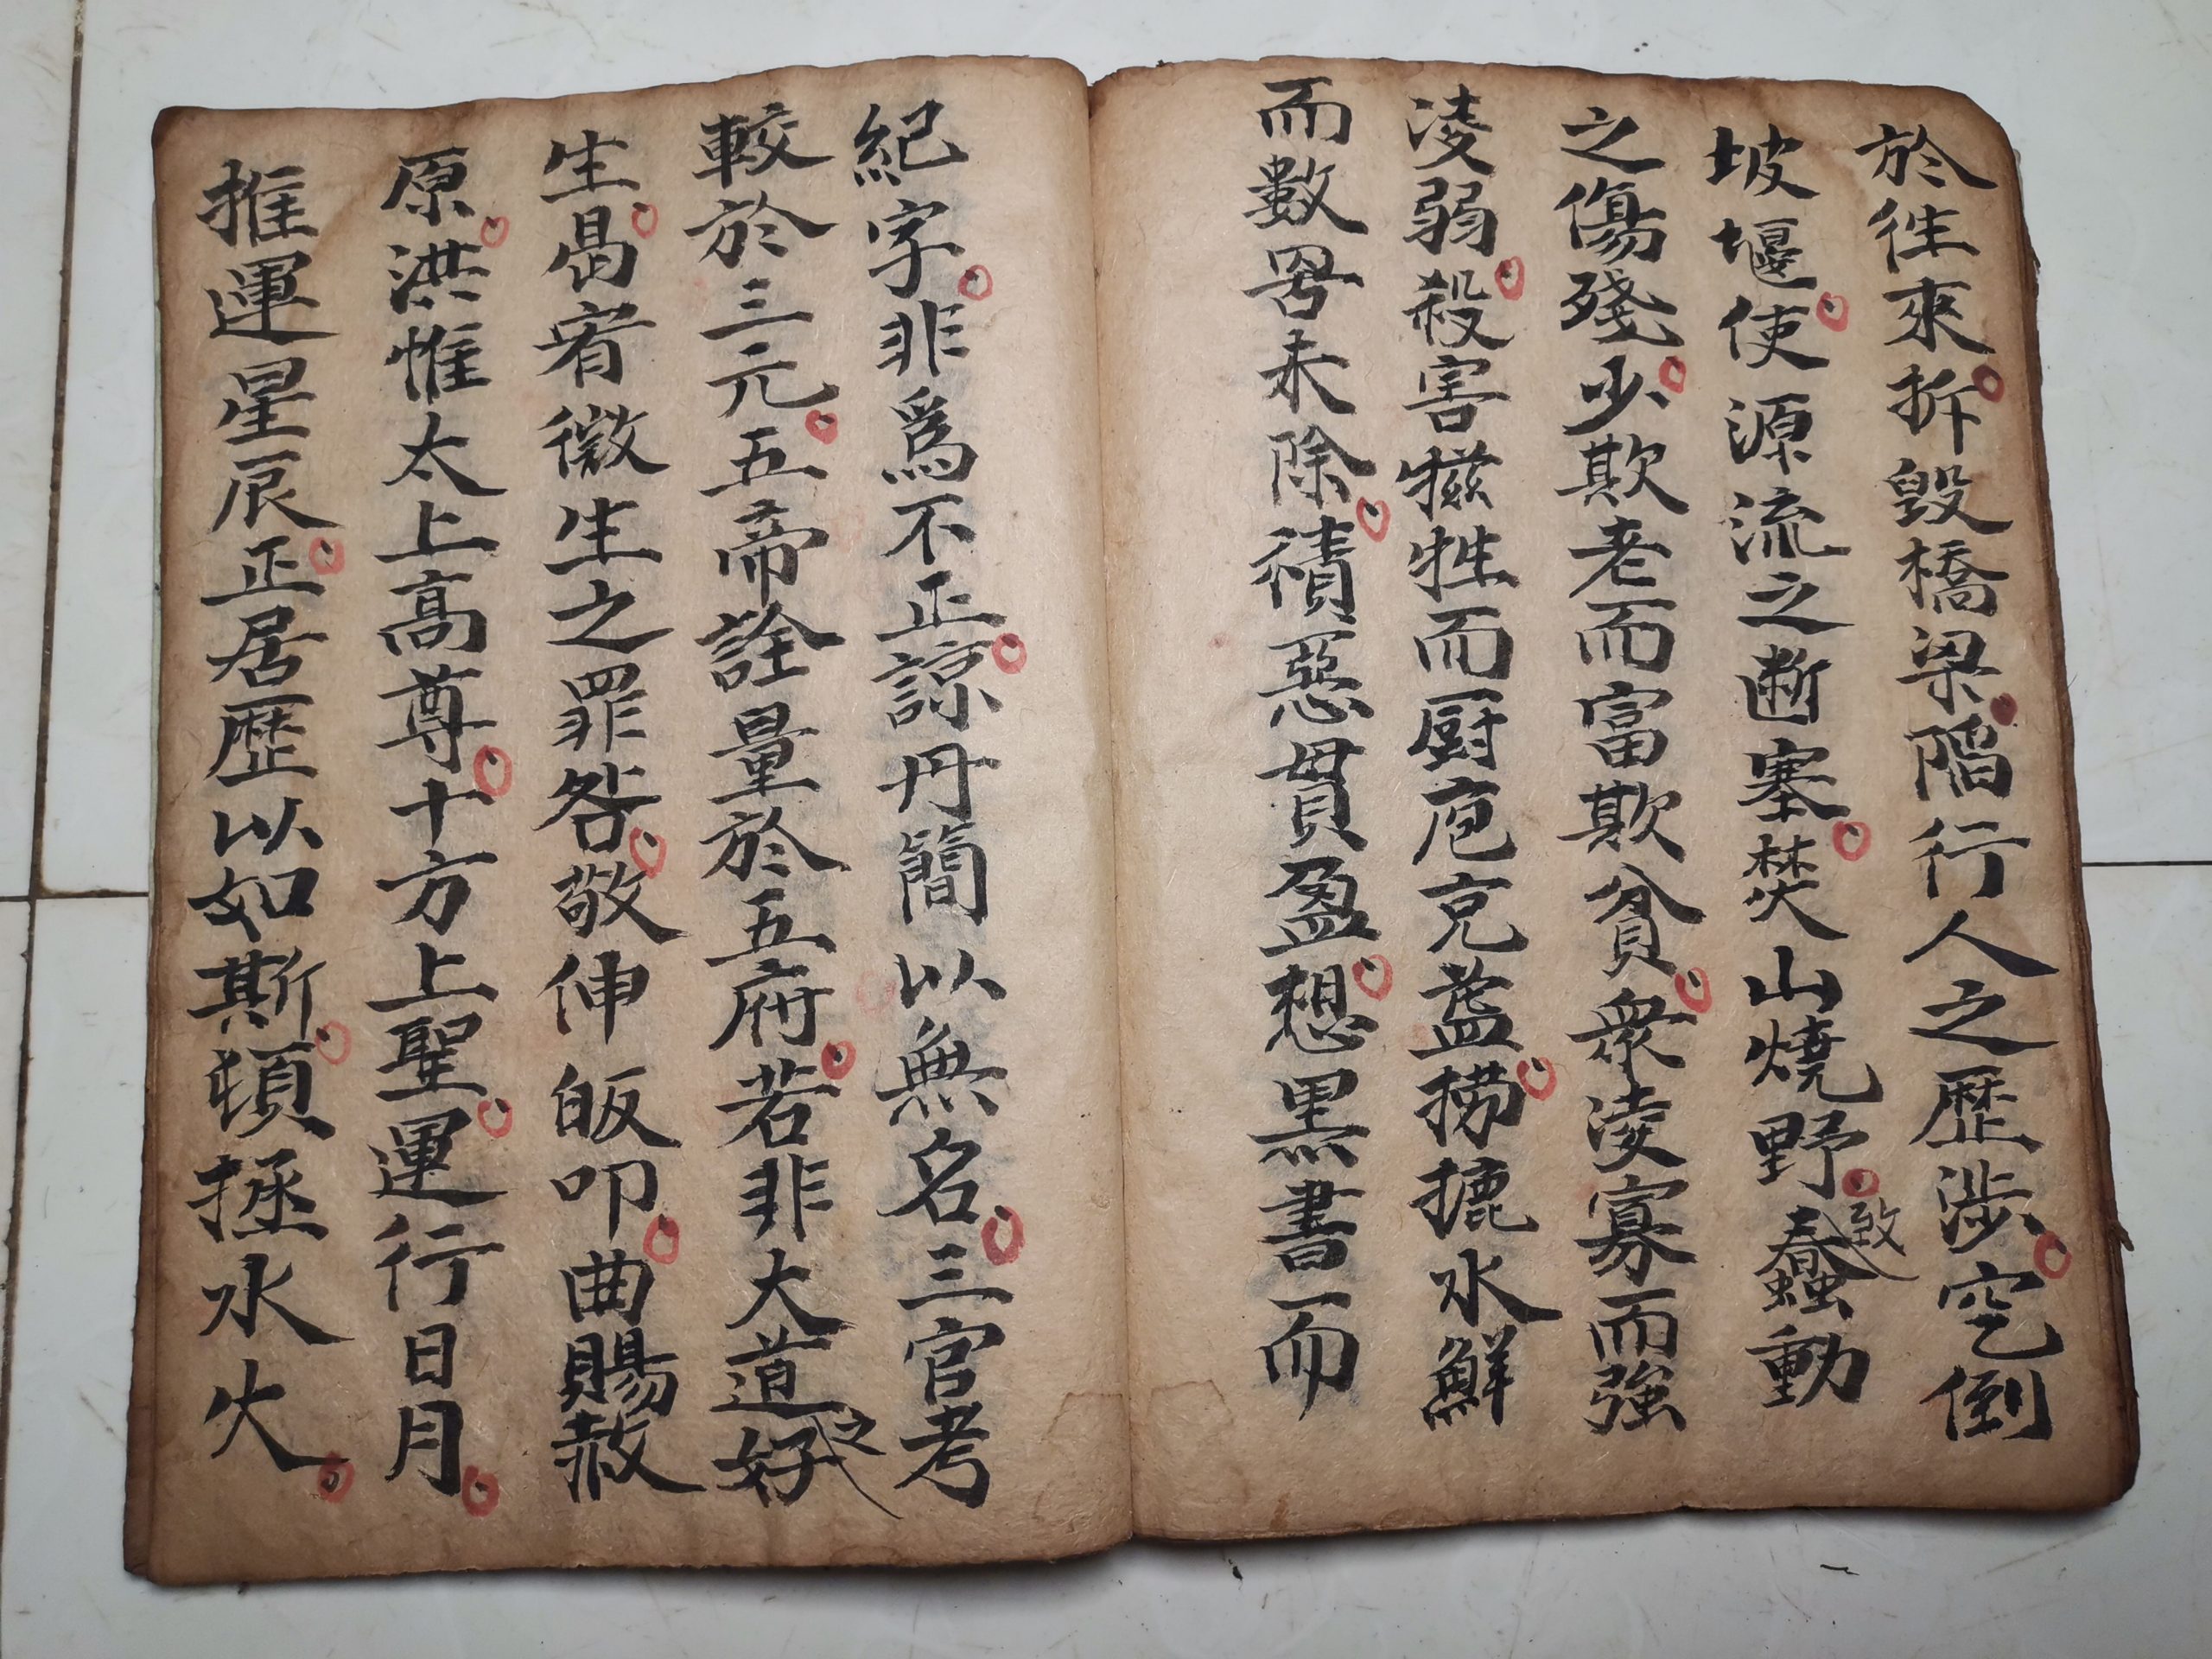 於徃來拆毀橋梁陌行人之歷涉穵倒
坡堰使源流之断塞焚山燒野致蠢動
之傷殘少欺老而富欺貧衆淩寡而強
淩弱殺害牲而厨庖充盈撈摝水鮮
而數未除積惡貫盈想黒書而
紀字非爲不正諒丹簡以無名三官考
較於三元五帝詮量於五府若非大道之好
生曷宥微生之罪咎敬伸皈叩曲賜赦
原洪惟太上高尊十方上聖運行日月
推運星辰正居歷以如斯頓拯水火